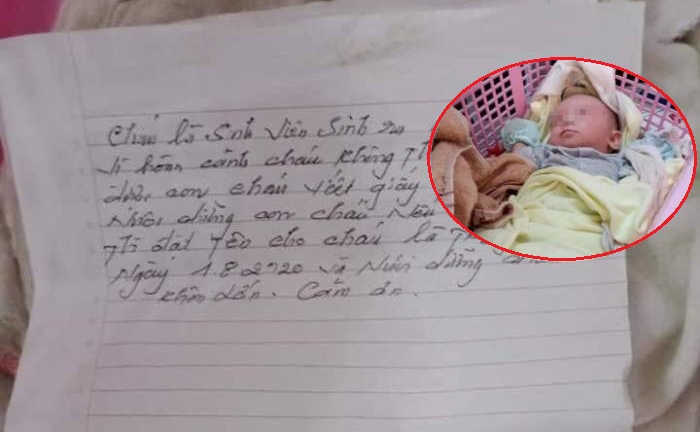 Cháu là Sinh Viên Sinh ra
Vì hoàn cảnh cháu không Th
được con cháu Viết giấy
Nuôi dưỡng con cháu Nếu
Thì đặt Tên cho cháu là
Ngày 1.8.2020 và Nuôi dưỡng
khôn lớn. Cảm ơn.